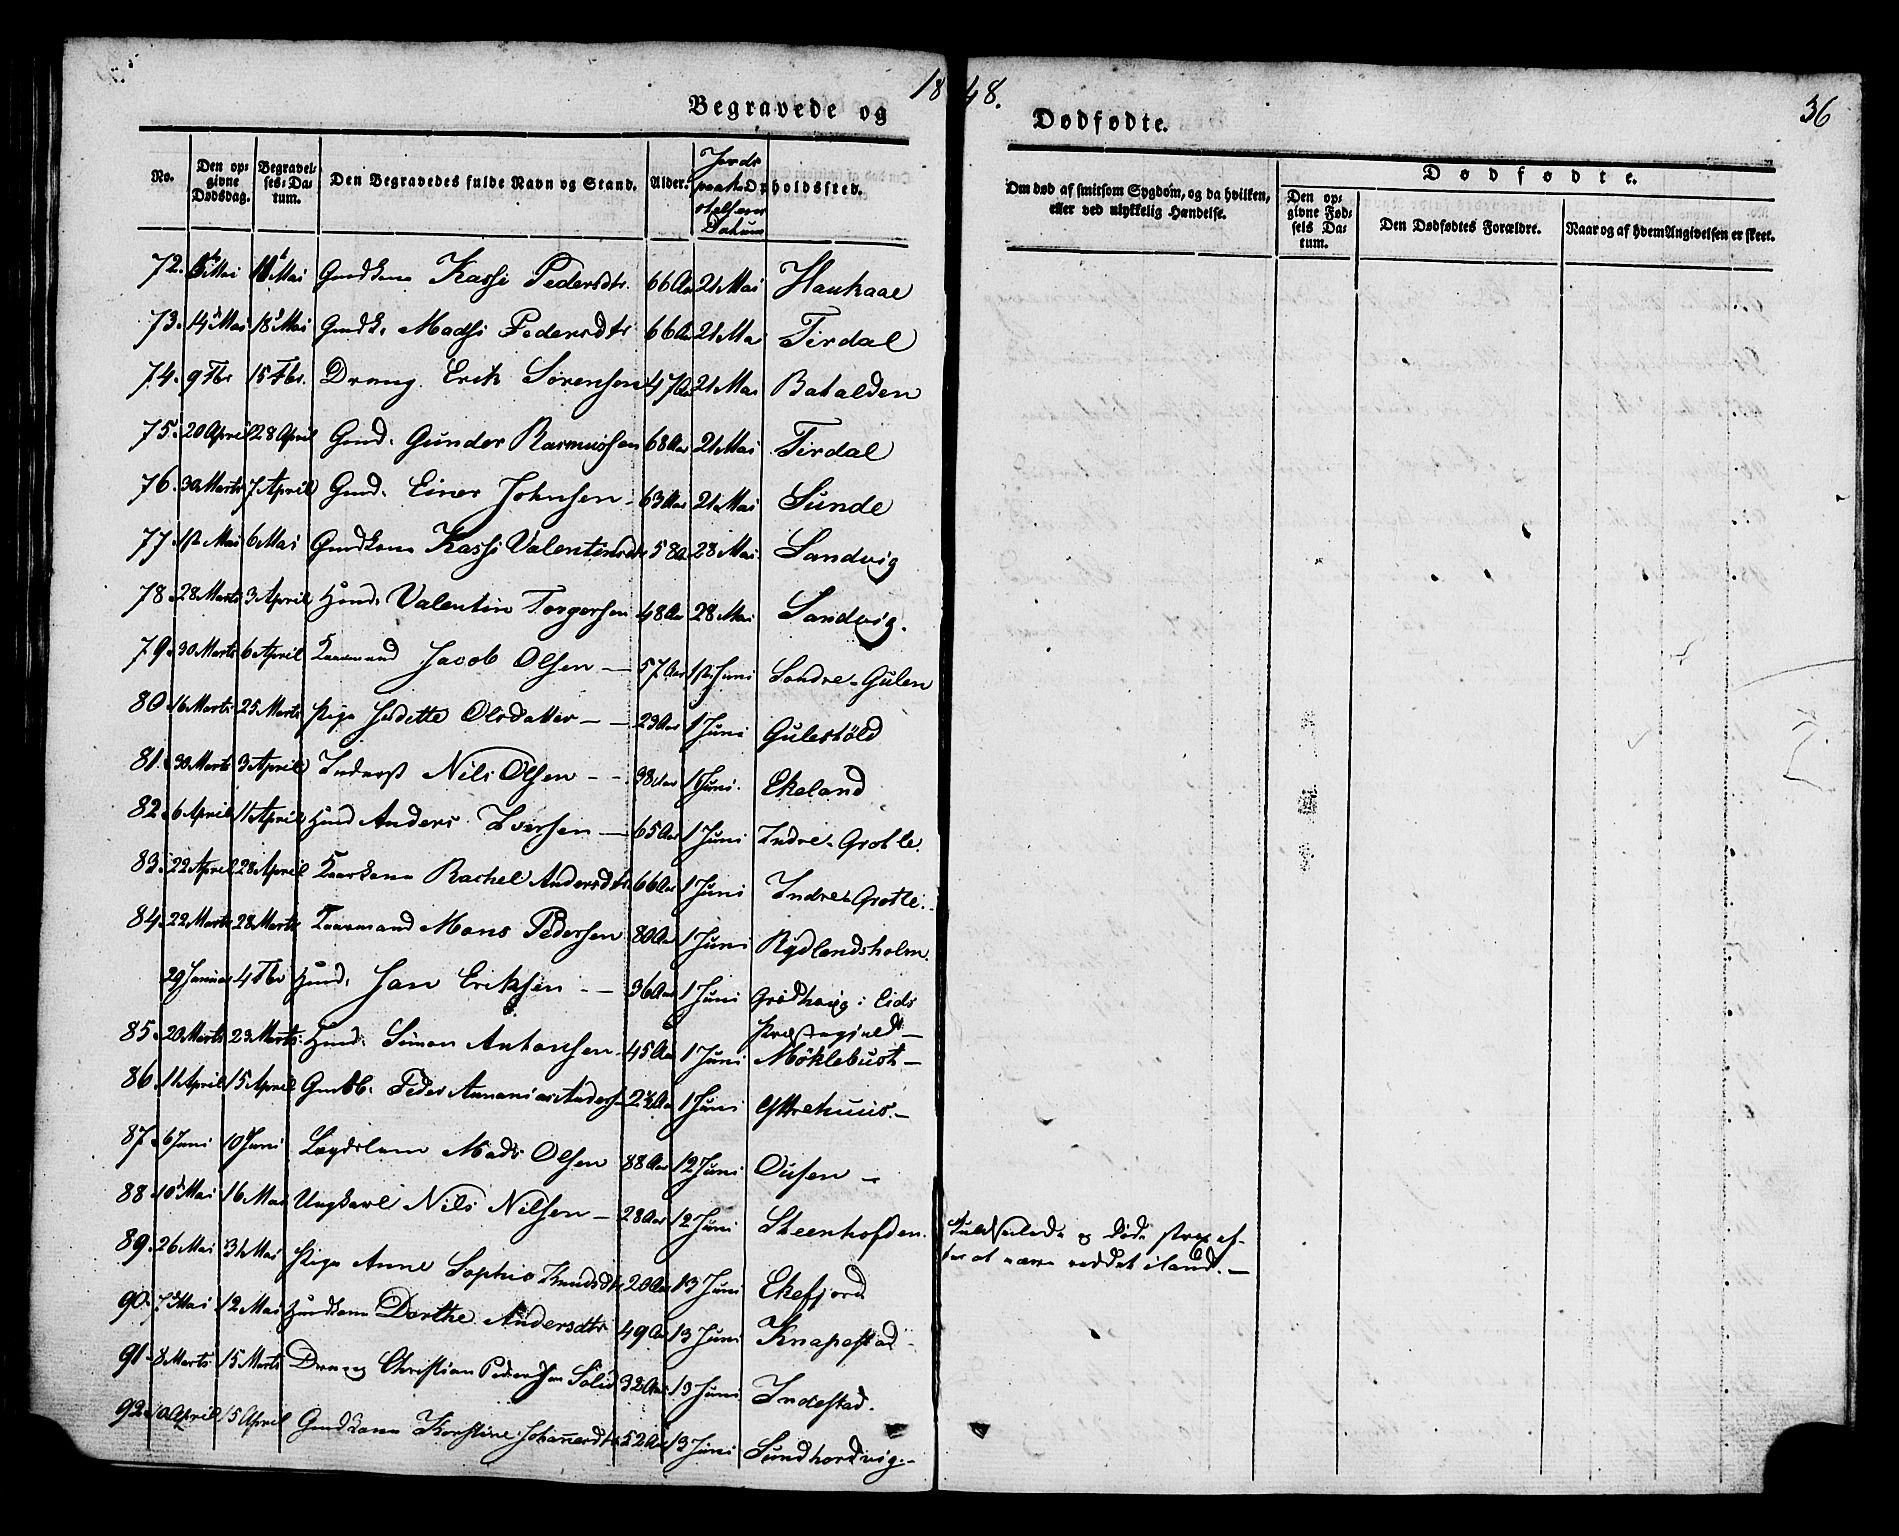 1848.
36
Begravede og
Dødfødte.
No.
Den opgivne Dødsdag.
Begravelses-Datum.
Den Begravedes fulde Navn og Stand.
Alder.
Jords paakastelsens Datum
Opholdssted.
Om død af smitsom Sygdom, og da hvilken, eller ved ulykkelig Hændelse.
Dødfødte.
Den opgivne Fødsels Datum.
Den Dødfødtes Forældre.
Naar og af hvem Angivelsen er skeet.
72. Mai Mai Gmdkone Kassi Pedersdtr. 66 Aar 21 Mai Haukaae
73. 14 Mai 18 Mai Gmdk. Madsi Pedersdtr 66 Aar 21 Mai Tirdal
74. 9 Fbr 15 Fbr. Dreng Erik Sørensen 47 Aar 21 Mai Batalden
75. 20 April 28 April Gmd. Gunder Rasmussen 68 Aar 21 Mai Tirdal
76. 30 Marts 7 April Gmd. Einer Johnsen 63 Aar 21 Mai Sunde
77. 1ste Mai 6 Mai Gmdkone Kassi Valentinsdtr 58 Aar 28 Mai Sandvig
78. 28 Marts 3 April Hmd. Valentin Torgersen 48 Aar 28 Mai Sandvig.
79. 30 Marts 6 April Kaarmand Jacob Olsen — 57 Aar 1ste Juni Søndre-Gulen
80. 16 Marts 25 Marts Pige Juditte Olsdatter — 23 Aar 1 Juni Gulestöld
81. 30 Marts 3 April Inderst Nils Olsen — 38 Aar 1 Juni. Ekeland
82. 6 April 11 April Hmd Anders Iversen — 65 Aar 1 Juni Indre-Grotle.
83. 22 April 28 April Kaarkone Rachel Andersdtr 66 Aar 1 Juni Indre-Grotle.
84. 22 Marts 28 Marts Kaarmand Mons Pedersen 80 Aar 1 Juni Rydlandsholm.
29 Januar 4 Fbr Hmd. Jan Eriksen — 36 Aar 1 Juni Grödhaug i Eids
Præstegjeld —
85. 20 Marts 23 Marts. Hmd. Simon Antonsen 45 Aar 1 Juni Möklebust —
86. 11 April 15 April Gmdb. Peder Annanias Anders. 24 Aar 1 Juni Yttrehuus. —
87. 6 Juni 10 Juni Lægdslem Mads Olsen 88 Aar 12 Juni Ousen —
88. 10 Mai 16 Mai Ungkarl Nils Nilsen — 28 Aar 12 Juni Steenhofden. Kuldseilede og døde strax ef-
ter at være reddet iland. —
89. 26 Mai 31 Mai Pige Anne Sophie Knudsdtr 20 Aar 13 Juni Ekefjord
90. 7 Mai 12 Mai Huuskone Dorthe Andersdtr 49 Aar 13 Juni Knapestad
91. 8 Marts 15 Marts Dreng Christian Pedersen Solid 32 Aar 13 Juni Indestad.
92. 10 April 15 April Gmdkone Korstine Johannesdtr 52 Aar 13 Juni Sundhordvig. —